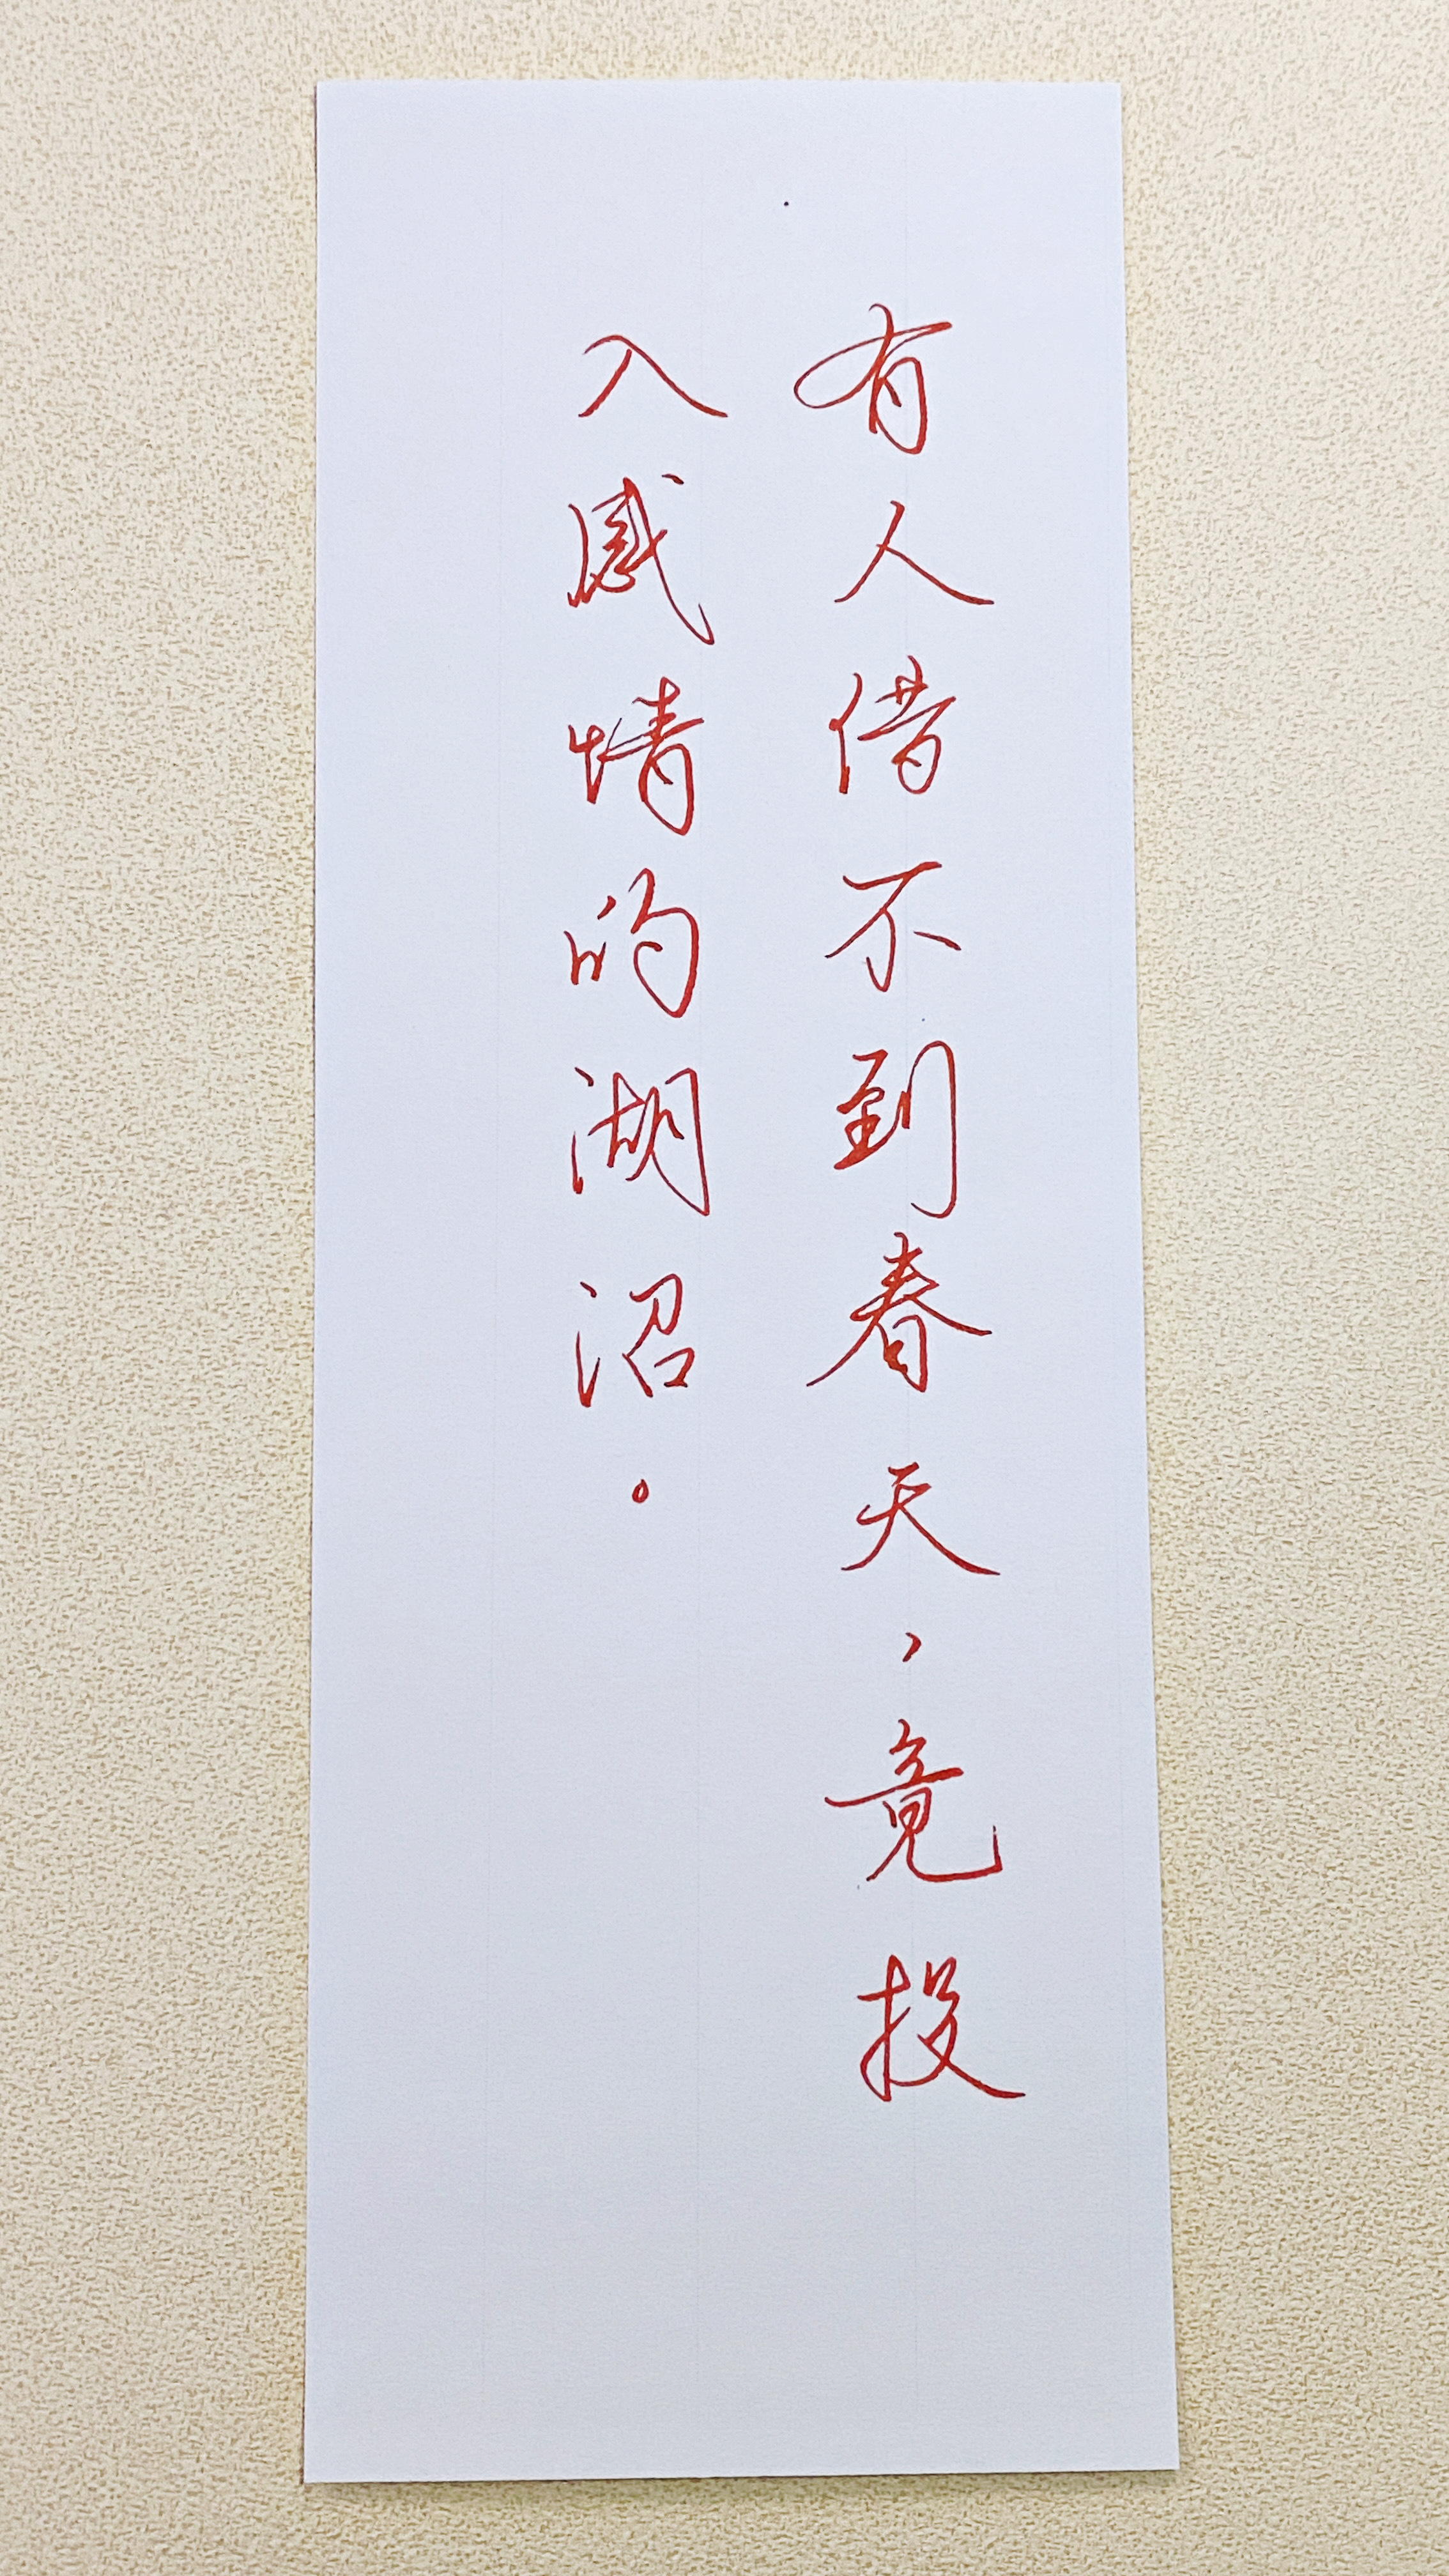 有人借不到春天，竟投
入感情的湖沼。